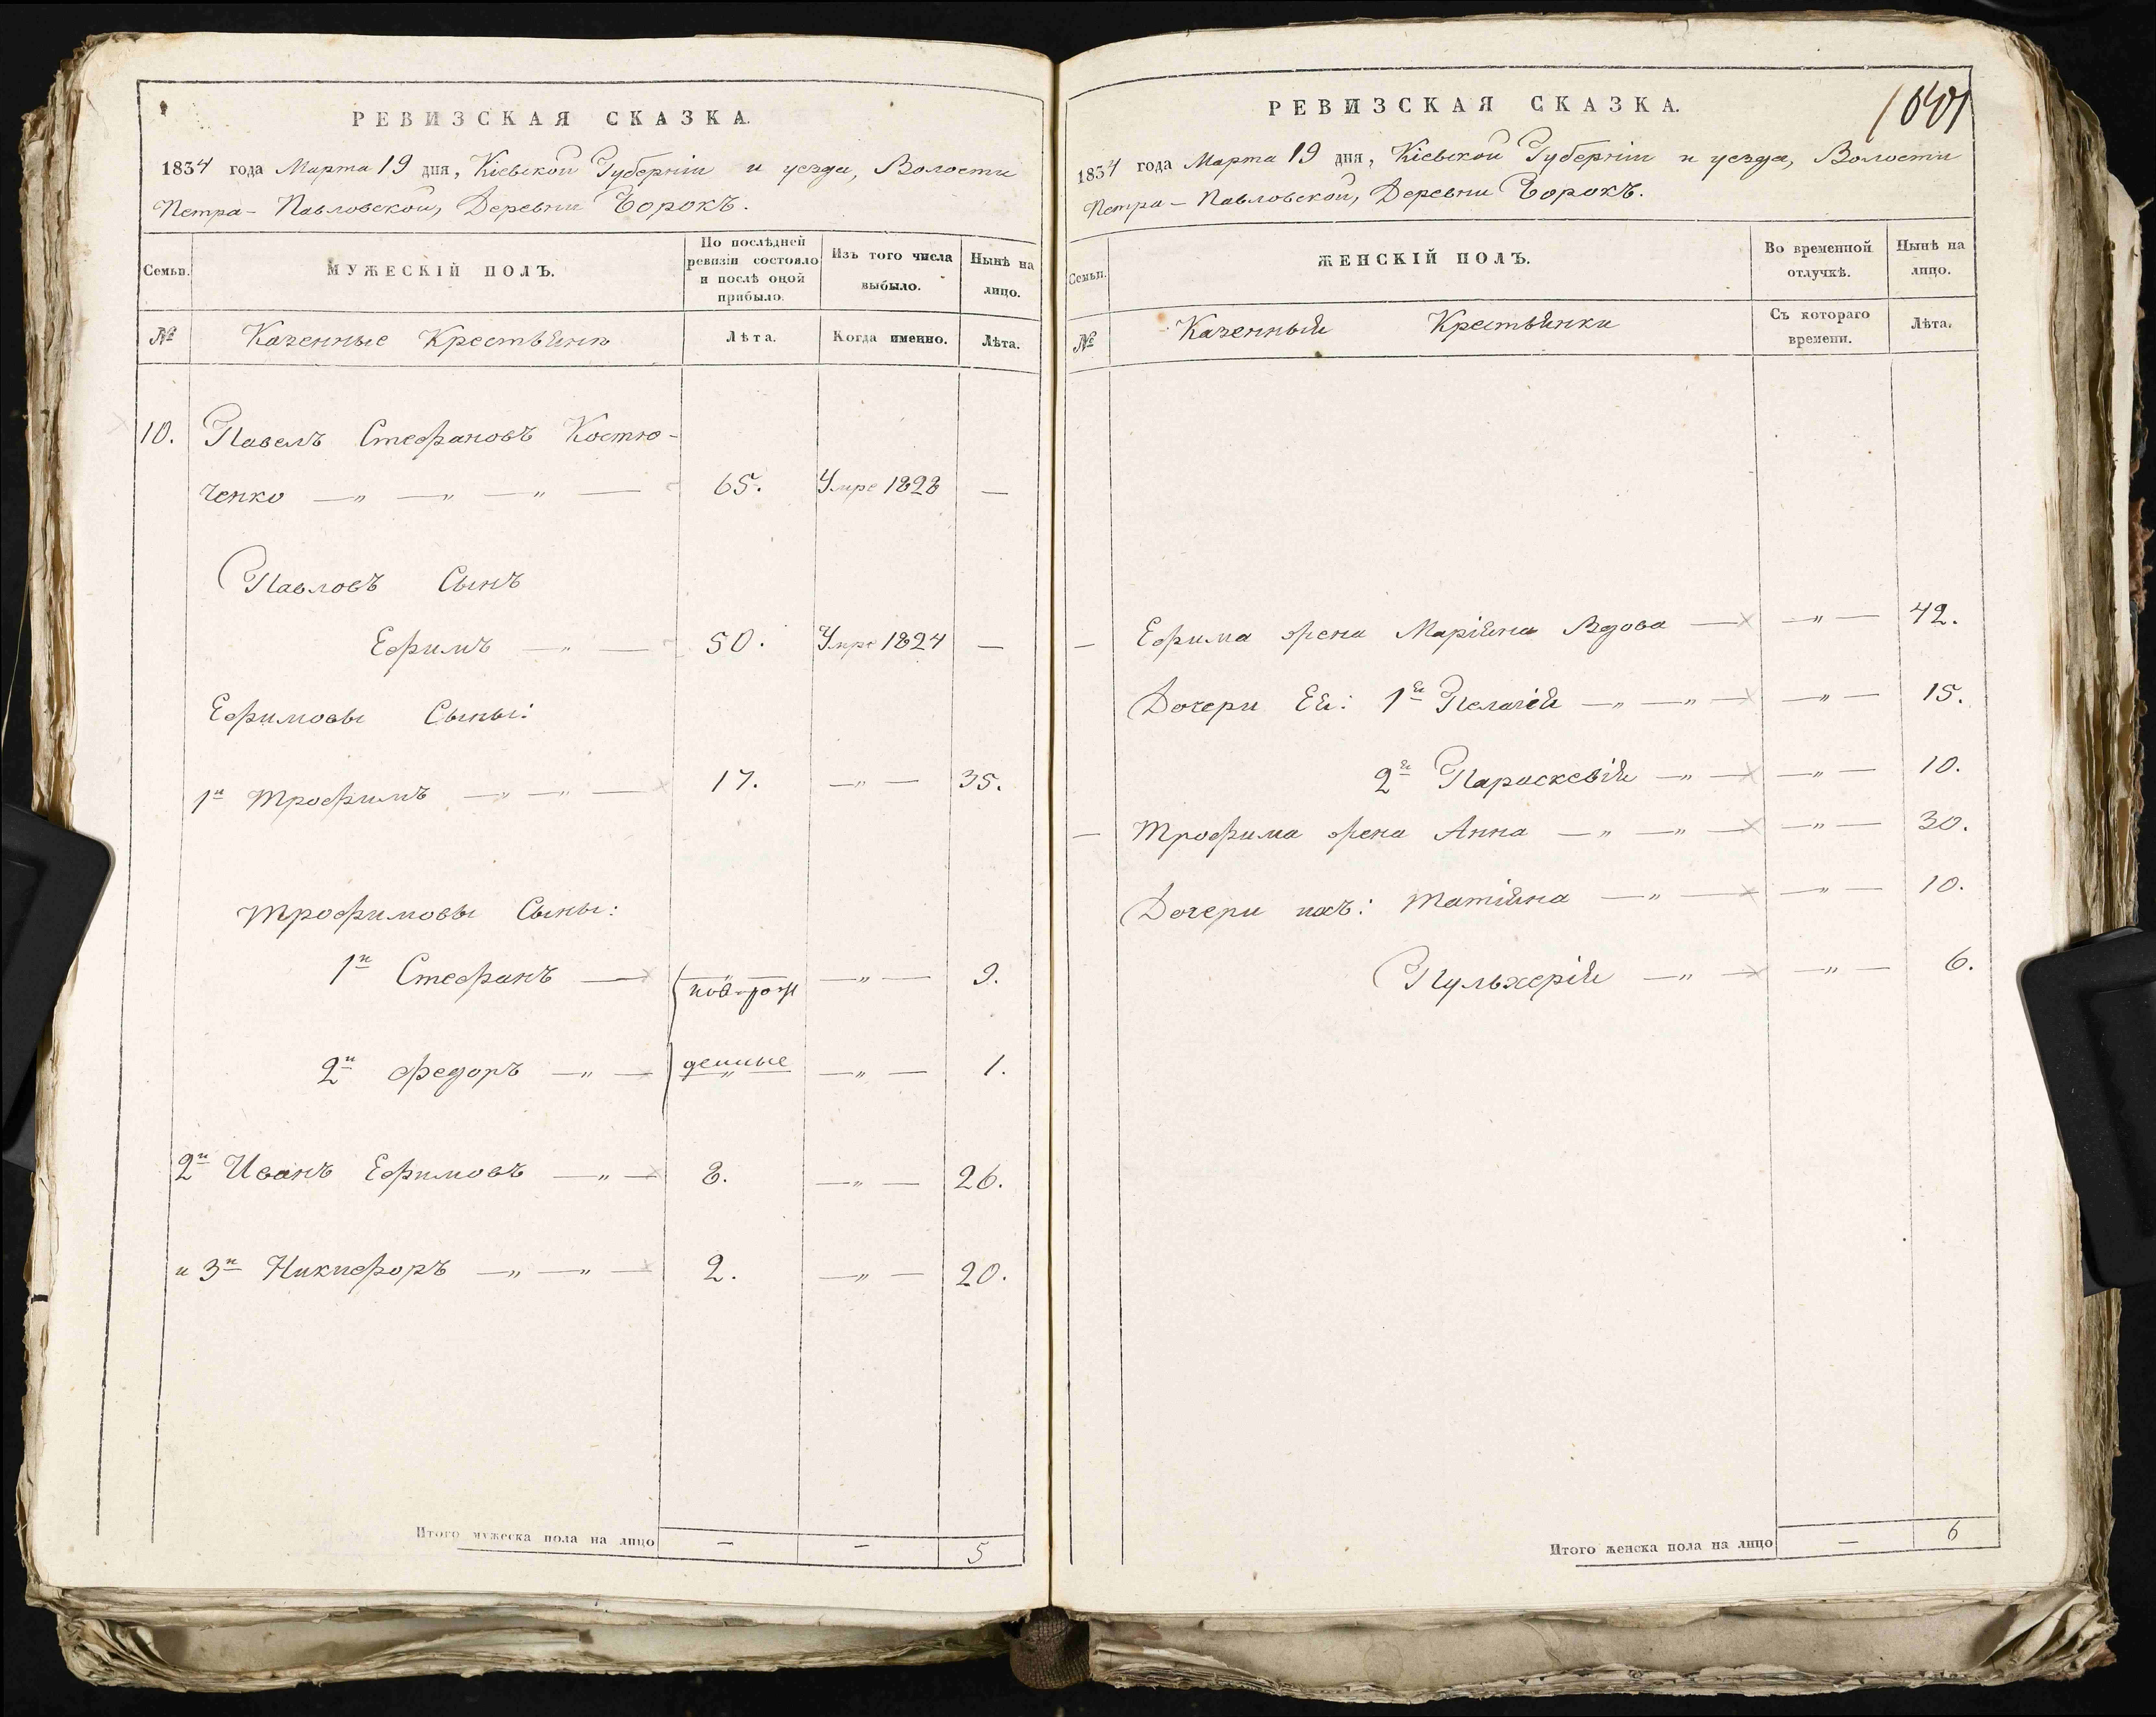 РЕВИЗСКАЯ СКАЗКА.
1834 года Марта 19 дня, Кіевской Губерніи и уезда, Волости
Петра-Павловской, Деревни Борокъ.
Семьи.
МУЖЕСКІЙ ПОЛЪ.
По послѣдней ревизіи состояло и послѣ оной прибыло.
Изъ того числа выбыло.
Нынѣ на лицо.
№
Казенные Крестьяне
Лѣта.
Когда именно.
Лѣта.
10. Павелъ Стефановъ Костю-
ченко — „ — „ — „ — 65. Умре 1828 —
Павловъ Сынъ
Ефимъ — „ — 50. Умре 1824 —
Ефимовы Сыны:
1й Трофимъ — „ — „ — 17. — „ — 35.
Трофимовы Сыны:
1й Стефанъ — — „ — новорож — „ — 9.
2й Федоръ — „ — денные „ — „ — 1.
2й Иванъ Ефимовъ — „ — 8. — „ — 26.
и 3й Никифоръ — „ — „ — 2. — „ — 20.
Итого мужеска пола на лицо — — 5
РЕВИЗСКАЯ СКАЗКА.
1834 года Марта 19 дня, Кіевской Губерніи и уезда, Волости
Петра-Павловской, Деревни Борокъ.
Семьи.
ЖЕНСКІЙ ПОЛЪ.
Во временной отлучкѣ.
Нынѣ на лицо.
№
Казенныя Крестьянки
Съ котораго времени.
Лѣта.
— Ефима жена Маріяна Вдова — — „ — 42.
Дочери Ея: 1я Пелагія — „ — „ — — „ — 15.
2я Параскевія — „ — — „ — 10.
— Трофима жена Анна — „ — „ — — „ — 30.
Дочери ихъ: Татіяна — „ — — „ — 10.
Пульхерія — „ — — „ — 6.
Итого женска пола на лицо — 6